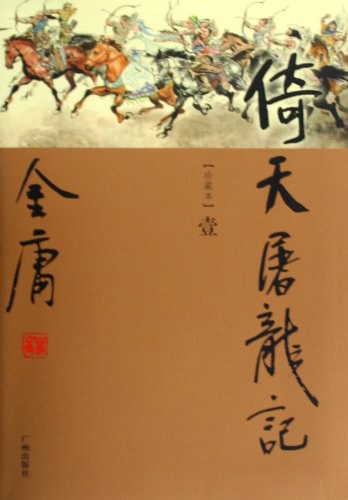 倚天屠龍記
【珍藏本】
壹
金庸
广州出版社